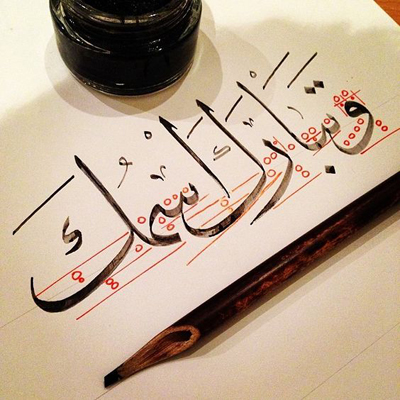 وتبارك اسمك